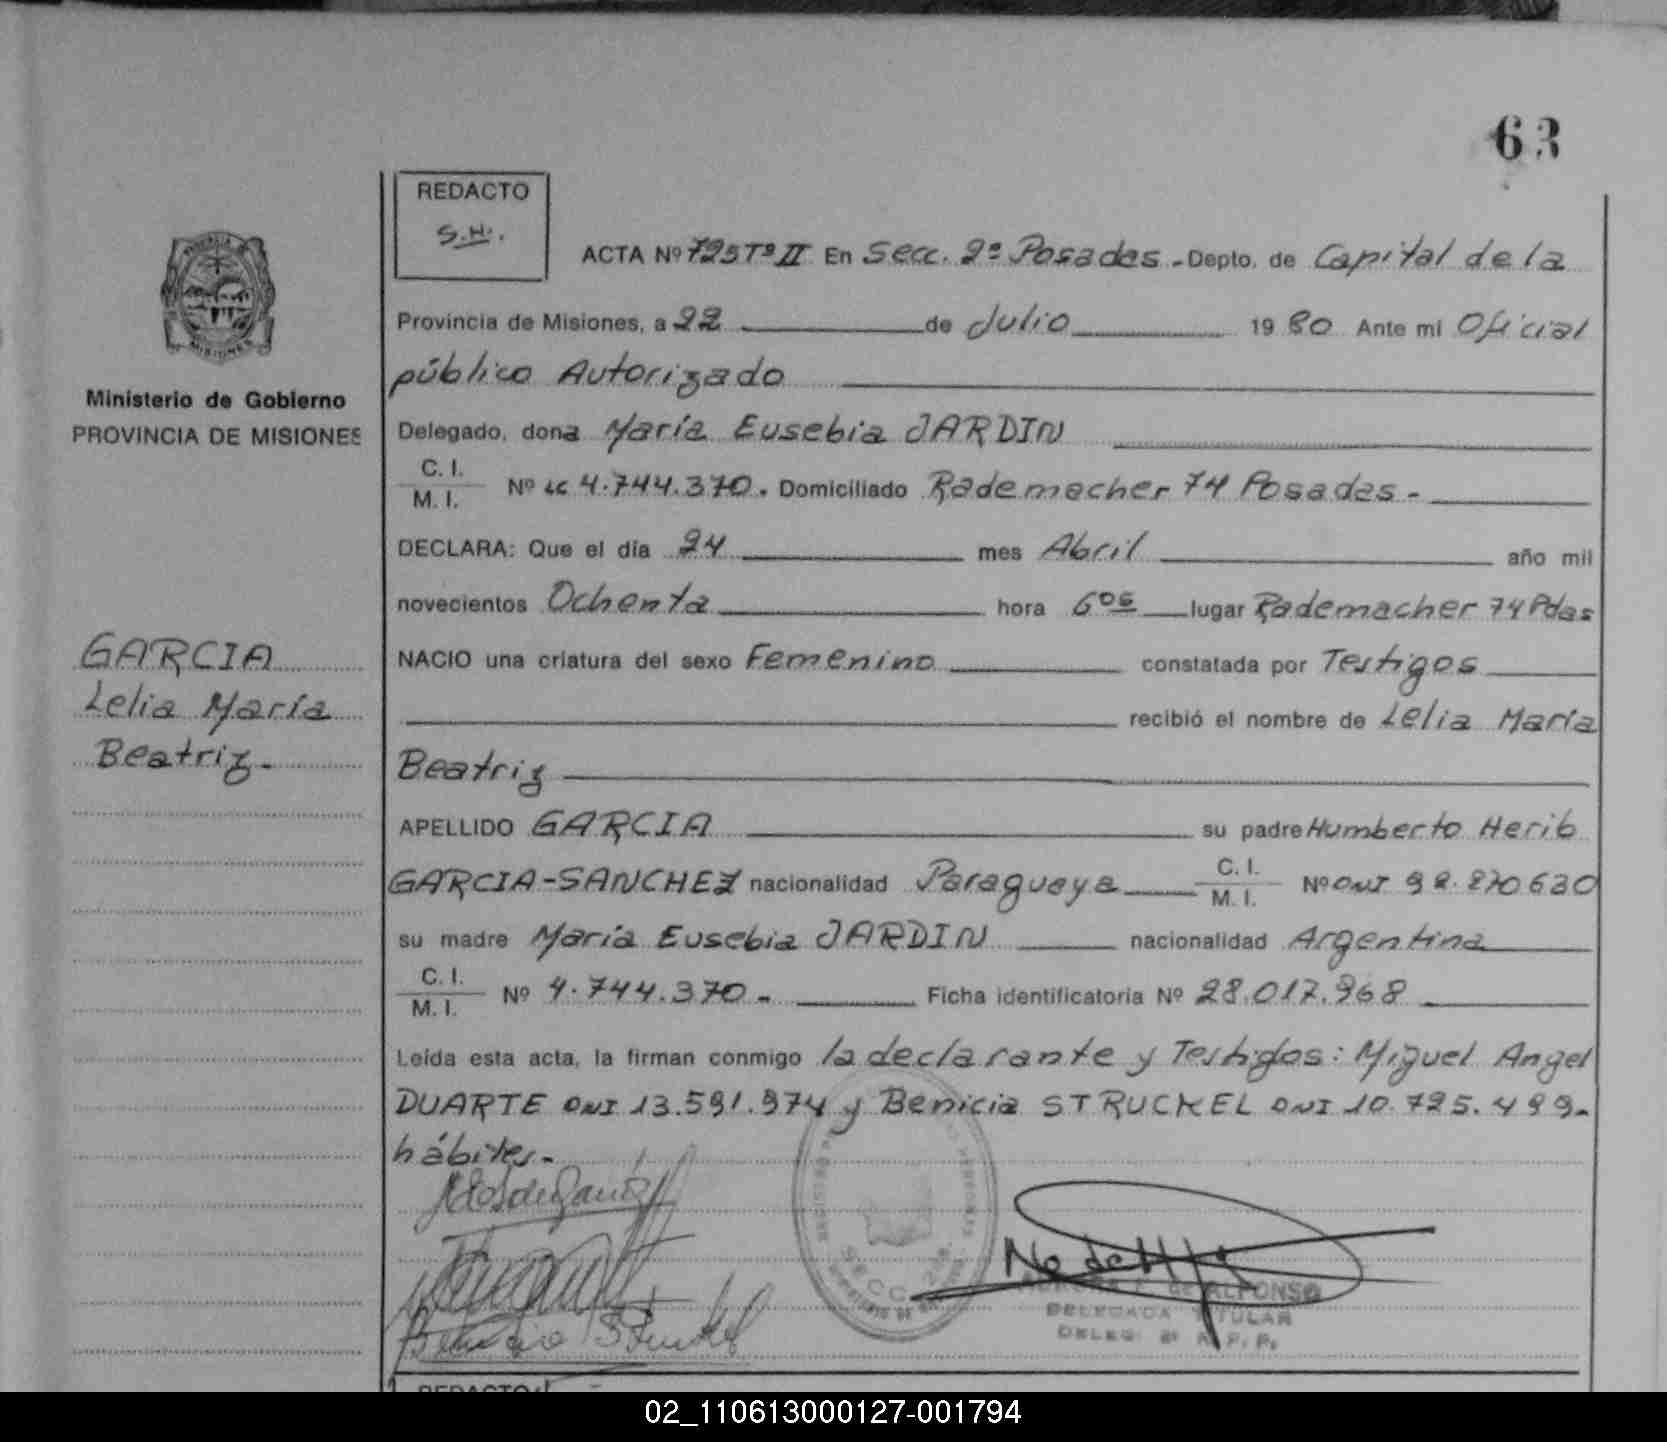 63
REDACTO
S.H.
ACTA Nº 725 Tº II En Secc. 2ª Posadas.- Depto. de Capital de la
Provincia de Misiones, a 22 de Julio 1980 Ante mi Oficial
público Autorizado
Ministerio de Gobierno
PROVINCIA DE MISIONES
Delegado, dona María Eusebia JARDIN
C. I.
M. I. Nº LC 4.744.370. Domiciliado Rademacher 74 Posadas-
DECLARA: Que el día 24 mes Abril año mil
novecientos Ochenta hora 6 05 lugar Rademacher 74 Pdas
GARCIA
Lelia María
Beatriz.
NACIO una criatura del sexo Femenino constatada por Testigos
recibió el nombre de Lelia María
Beatriz
APELLIDO GARCIA su padre Humberto Herib
GARCIA-SANCHEZ nacionalidad Paraguaya C. I.
M. I. Nº DNI 92.270.630
su madre María Eusebia JARDIN nacionalidad Argentina
C. I.
M. I. Nº 4.744.370.- Ficha identificatoria Nº 28.017.968
Leída esta acta, la firman conmigo la declarante y Testigos: Miguel Angel
DUARTE DNI 13.591.974 y Benicia STRUCKEL DNI 10.725.499-
hábiles.-
SECC. 2da.
DE ALFONSO
DELEGADA TITULAR
DELEG. 2ª R. P. P.
REDACTO
02_110613000127-001794